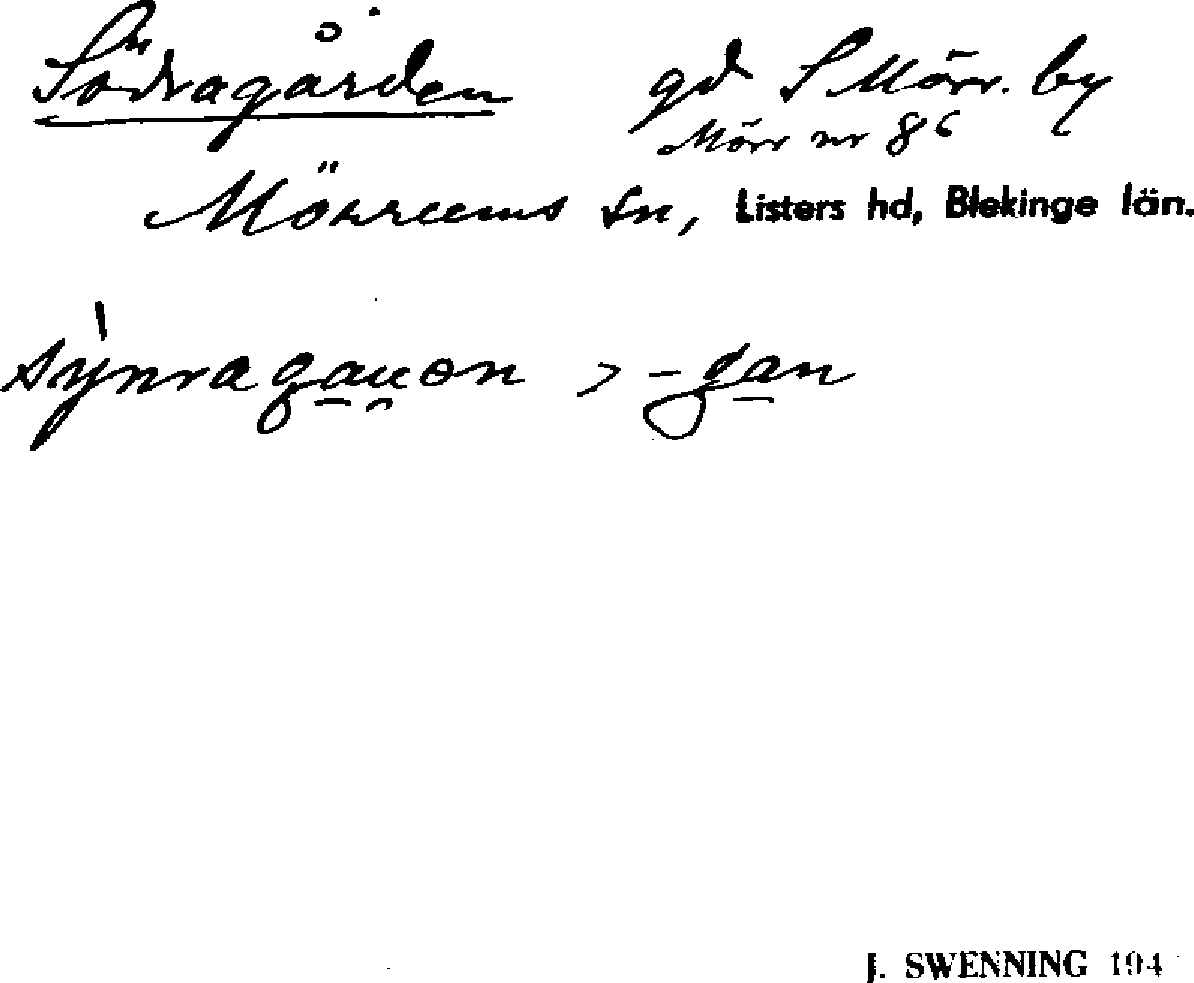 Södragården gd S Mörr. by
Mörr nr 86
Mörrums sn, Listers hd, Blekinge län.
sýnragauən > -gan
J. SWENNING 194